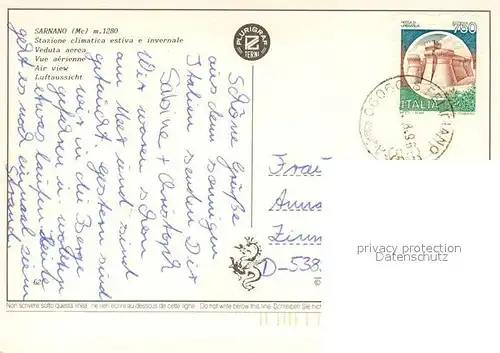 SARNANO (Mc) m.1280
Stazione climatica estiva e invernale
Veduta aerea
Vue aérienne
Air view
Luftaussicht
PLURIGRAF
TERNI
750
ITALIA
Schöne Grüße
aus dem sonnigen
Italien senden Dir
Sabine + Christoph
Wir waren schon
am Meer und sind
getaucht, gestern sind
wir in die Berge
gefahren um
etwas laufen. Heute
geht es noch einmal zum
Strand.
Frau
D-538
privacy protection
Datenschutz
Non scrivere sotto questa linea. ne rien écrire au dessous de cette ligne - Do not write below this line. Schreiben Sie nicht